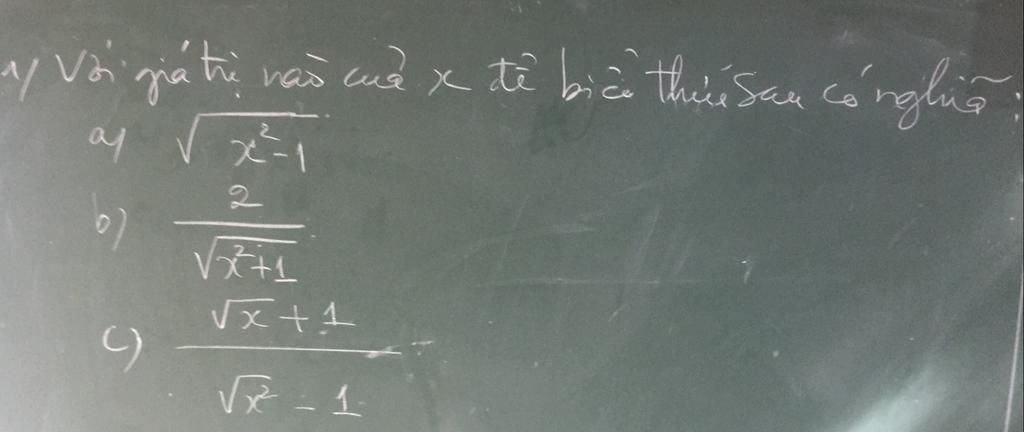 1/ Với giá trị nào của x để biểu thức sau có nghĩa:
a) √(x²-1)
b) 2/√(x²+1)
c) (√x + 1)/(√x² - 1)